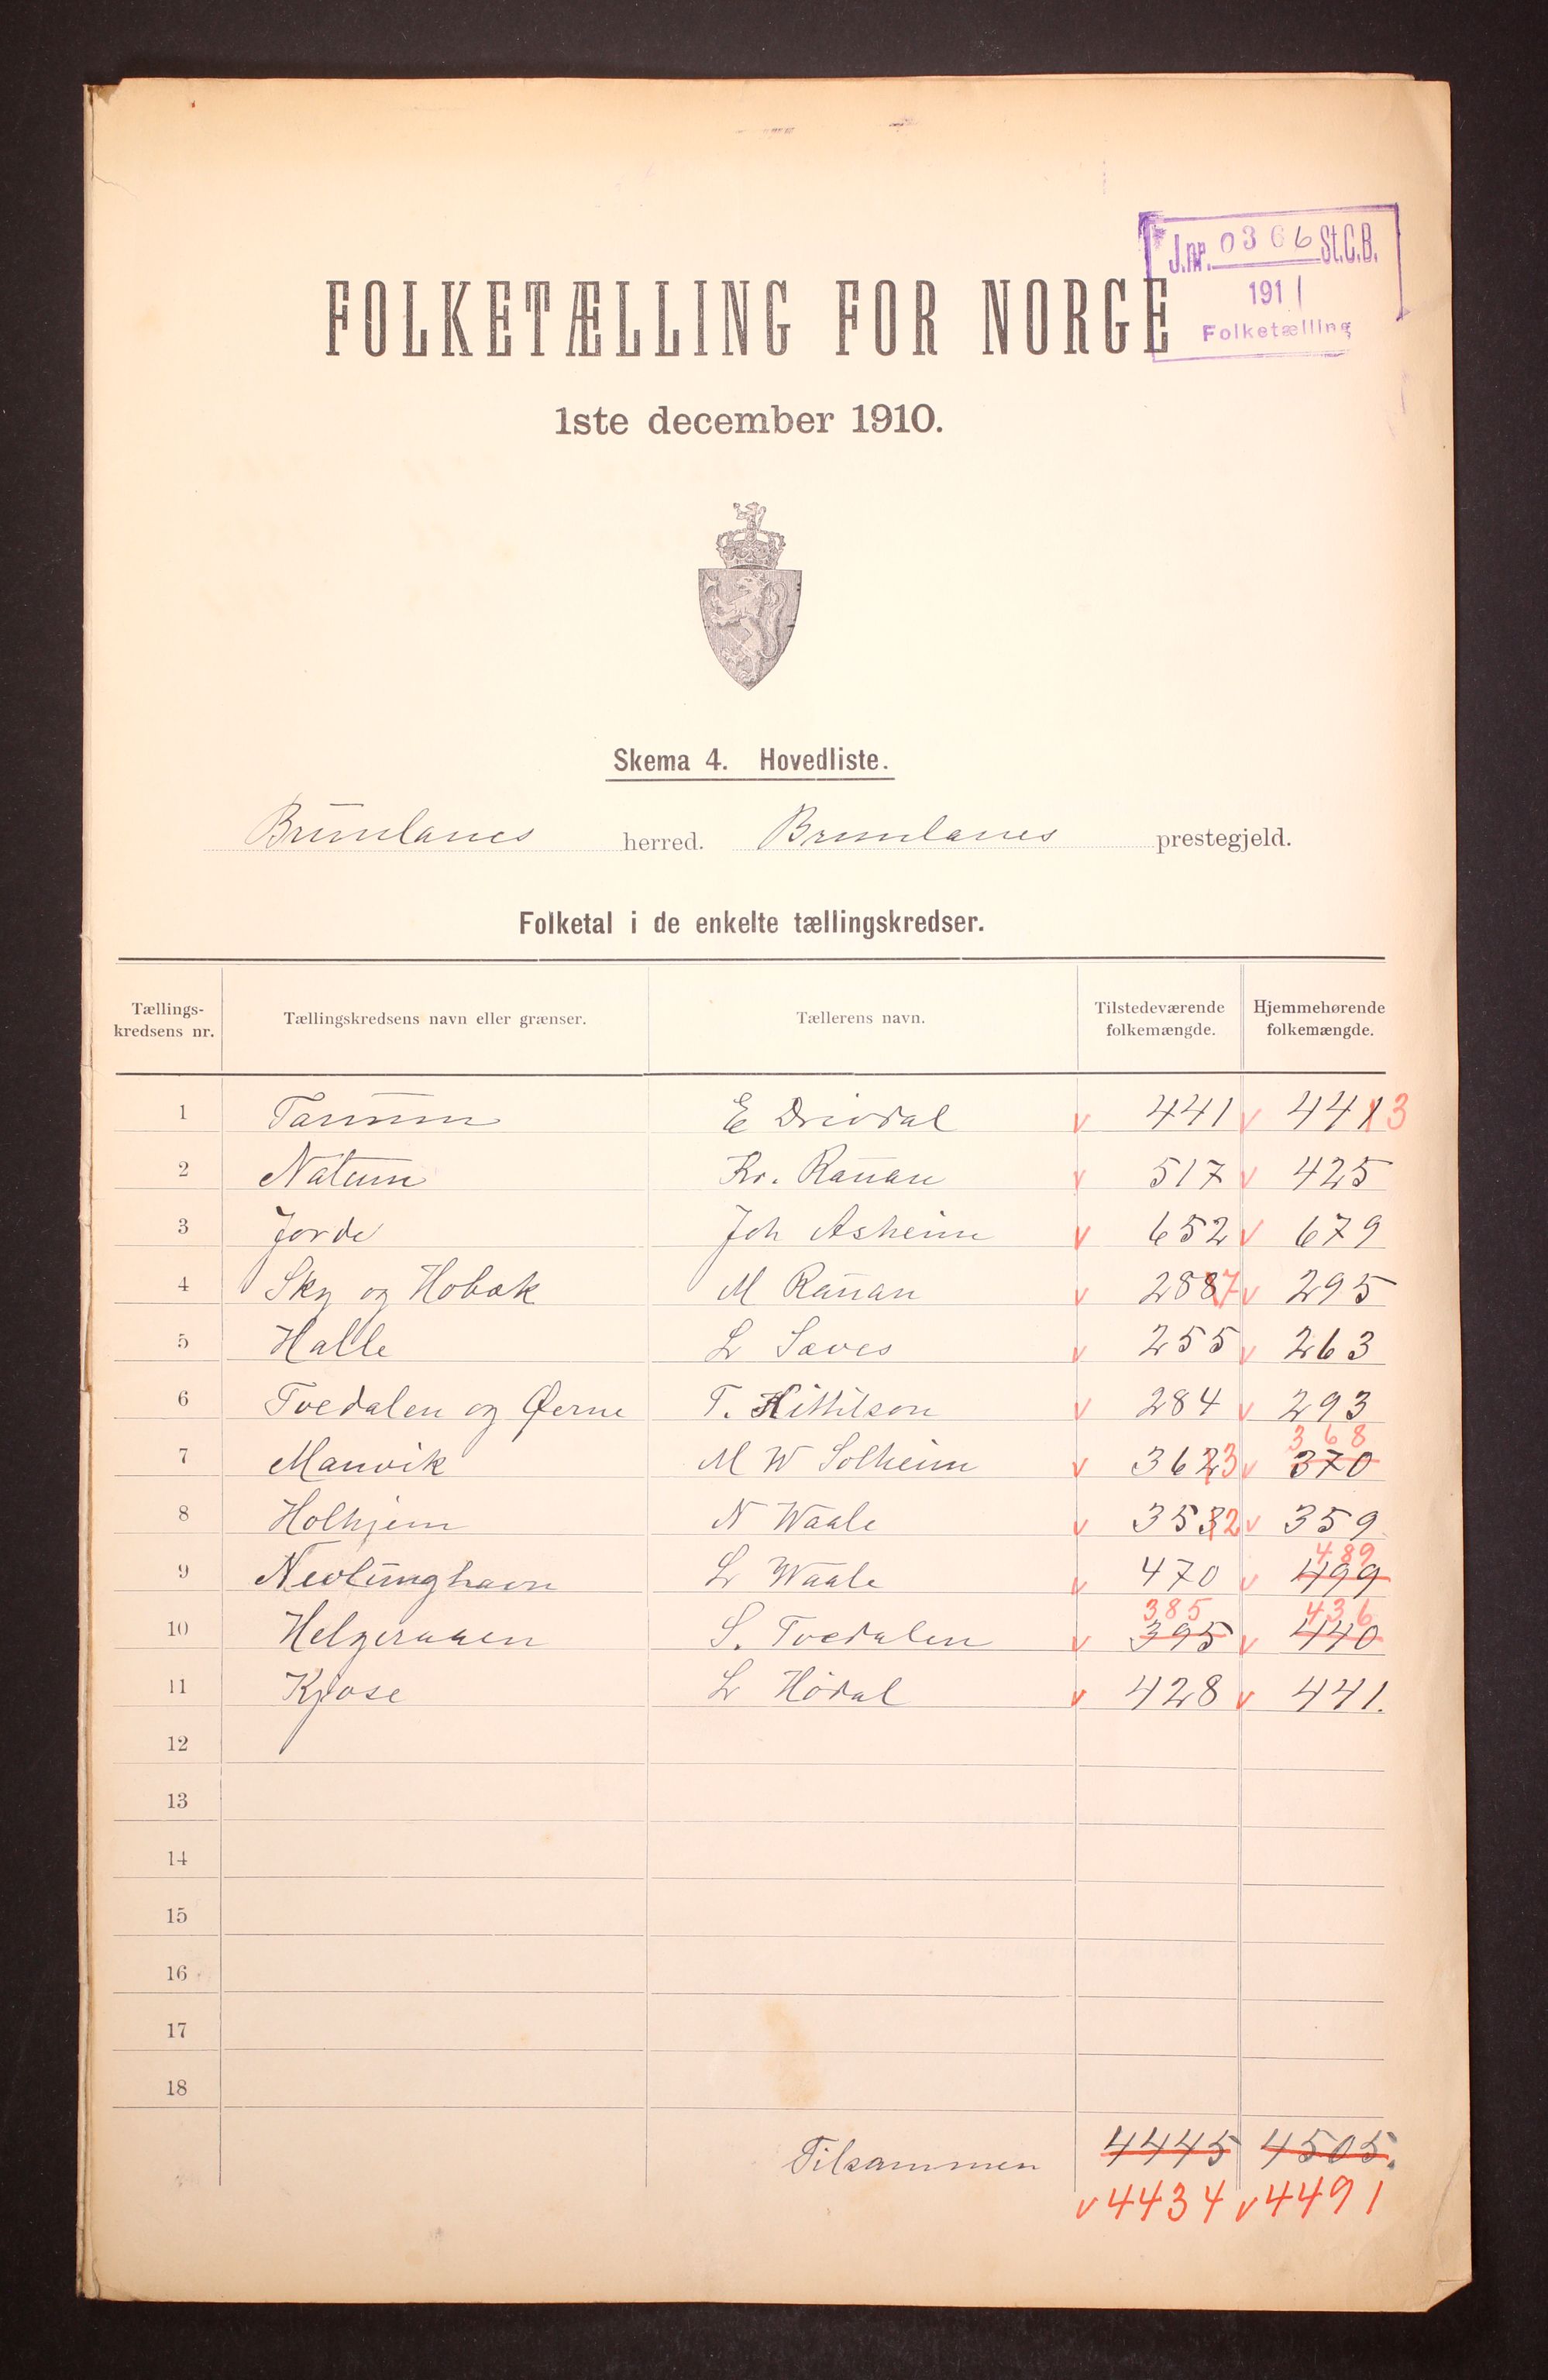 J.nr. 0366 St.C.B.
1911
Folketælling
FOLKETÆLLING FOR NORGE
1ste december 1910.
Skema 4. Hovedliste.
Brunlanes herred. Brunlanes prestegjeld.
Folketal i de enkelte tællingskredser.
Tællings-kredsens nr. Tællingskredsens navn eller grænser. Tællerens navn. Tilstedeværende folkemængde. Hjemmehørende folkemængde.
1 Tanum E Drivdal v 441 v 441 3
2 Nalum Kr. Rauan v 517 v 425
3 Jorde Joh Asheim v 652 v 679
4 Sky og Hobæk M Rauan v 288 7 v 295
5 Halle L Saves v 255 v 263
6 Tvedalen og Øerne T. Kittilson v 284 v 293
368
7 Manvik M W Solheim v 362 3 v 370
8 Holhjem N Waale v 353 2 v 359
489
9 Nevlunghavn L Waale v 470 v 499
385 436
10 Helgeraaen S. Tvedalen v 395 v 440
11 Kjose L Hödal v 428 v 441.
12
13
14
15
16
17
18
Tilsammen 4445 4505.
v 4434 v 4491